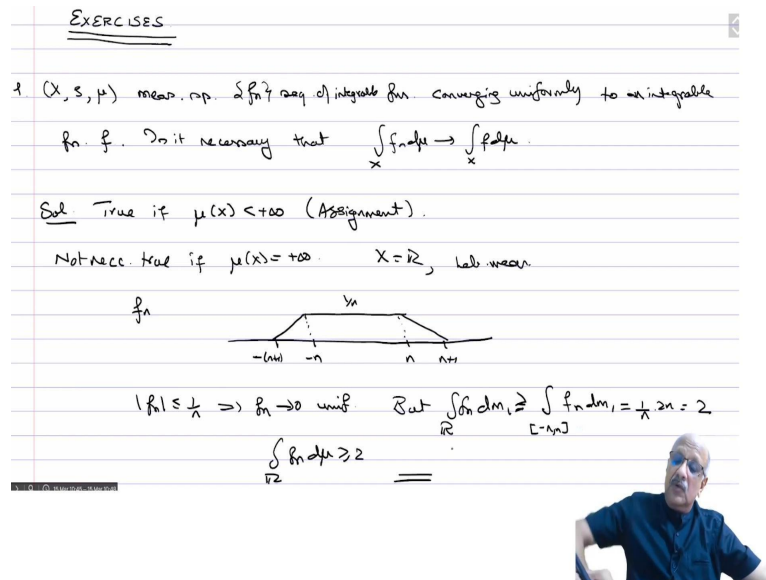 EXERCISES
1 (X, S, μ) meas. sp. {fn} seq. of integrable fns. converging uniformly to an integrable
fn. f. Is it necessary that ∫_X fn dμ → ∫_X f dμ.
Sol. True if μ(X) < +∞ (Assignment).
Not necc. true if μ(X) = +∞. X = ℝ, Leb. meas.
fn
1/n
-(n+1) -n n n+1
|fn| ≤ 1/n ⇒ fn → 0 unif. But ∫_ℝ fn dm₁ ≥ ∫_[-n,n] fn dm₁ = 1/n · 2n = 2
∫_ℝ fn dμ ≥ 2